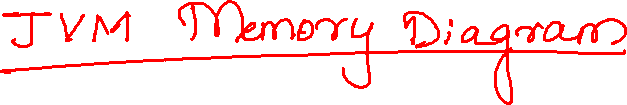 JVM Memory Diagram